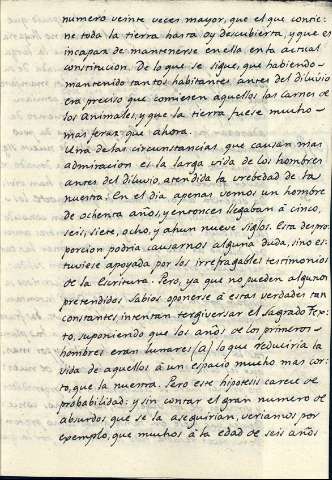 numero veinte veces mayor, que el que contie-
ne toda la tierra hasta oy descubierta, y que es
incapaz de mantenerse en ella en ta actual
constitucion. De lo que se sigue, que habiendo-
mantenido tantos habitantes antes del diluvio
era preciso que comiesen aquellos las carnes de
los Animales, y que la tierra fuese mucho-
mas feraz que ahora.
Una de las circunstancias que causan mas
admiracion es la larga vida de los hombres
antes del diluvio, atendida la brebedad de la
nuestra. En el dia apenas vemos un hombre
de ochenta años, y entonces llegaban à cinco,
seis, siete, ocho, y ahun nueve siglos. Esta despro-
porcion podria causarnos alguna duda, sino es-
tuviese apoyada por los irrefragables testimonios
de la Escritura. Pero, ya que no pueden algunos
pretendidos sabios oponerse à estas verdades tan
constantes intentan tergiversar el sagrado Tex-
to, suponiendo que los años de los primeros-
hombres eran lunares (a) lo que reduciria la
vida de aquellos à un espacio mucho mas cor-
to, que la nuestra. Pero este hipotesis carece de
probabilidad: y sin contar el gran numero de
absurdos que se la aseguirian, veriamos por
exemplo, que muchos à la edad de seis años